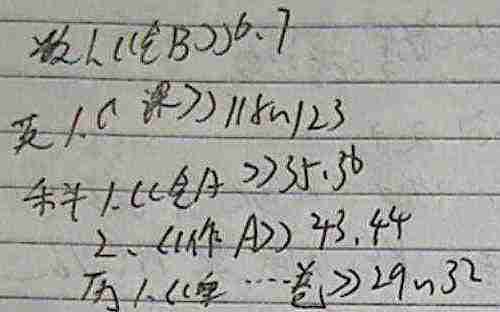 数1.《全B》6.7
英1.《课》118~123
科1.《全A》35.36
2.《作A》43.44
历1.《单……卷》29~32